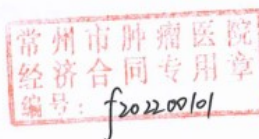 常州市肿瘤医院
经济合同专用章
编号：f202200101